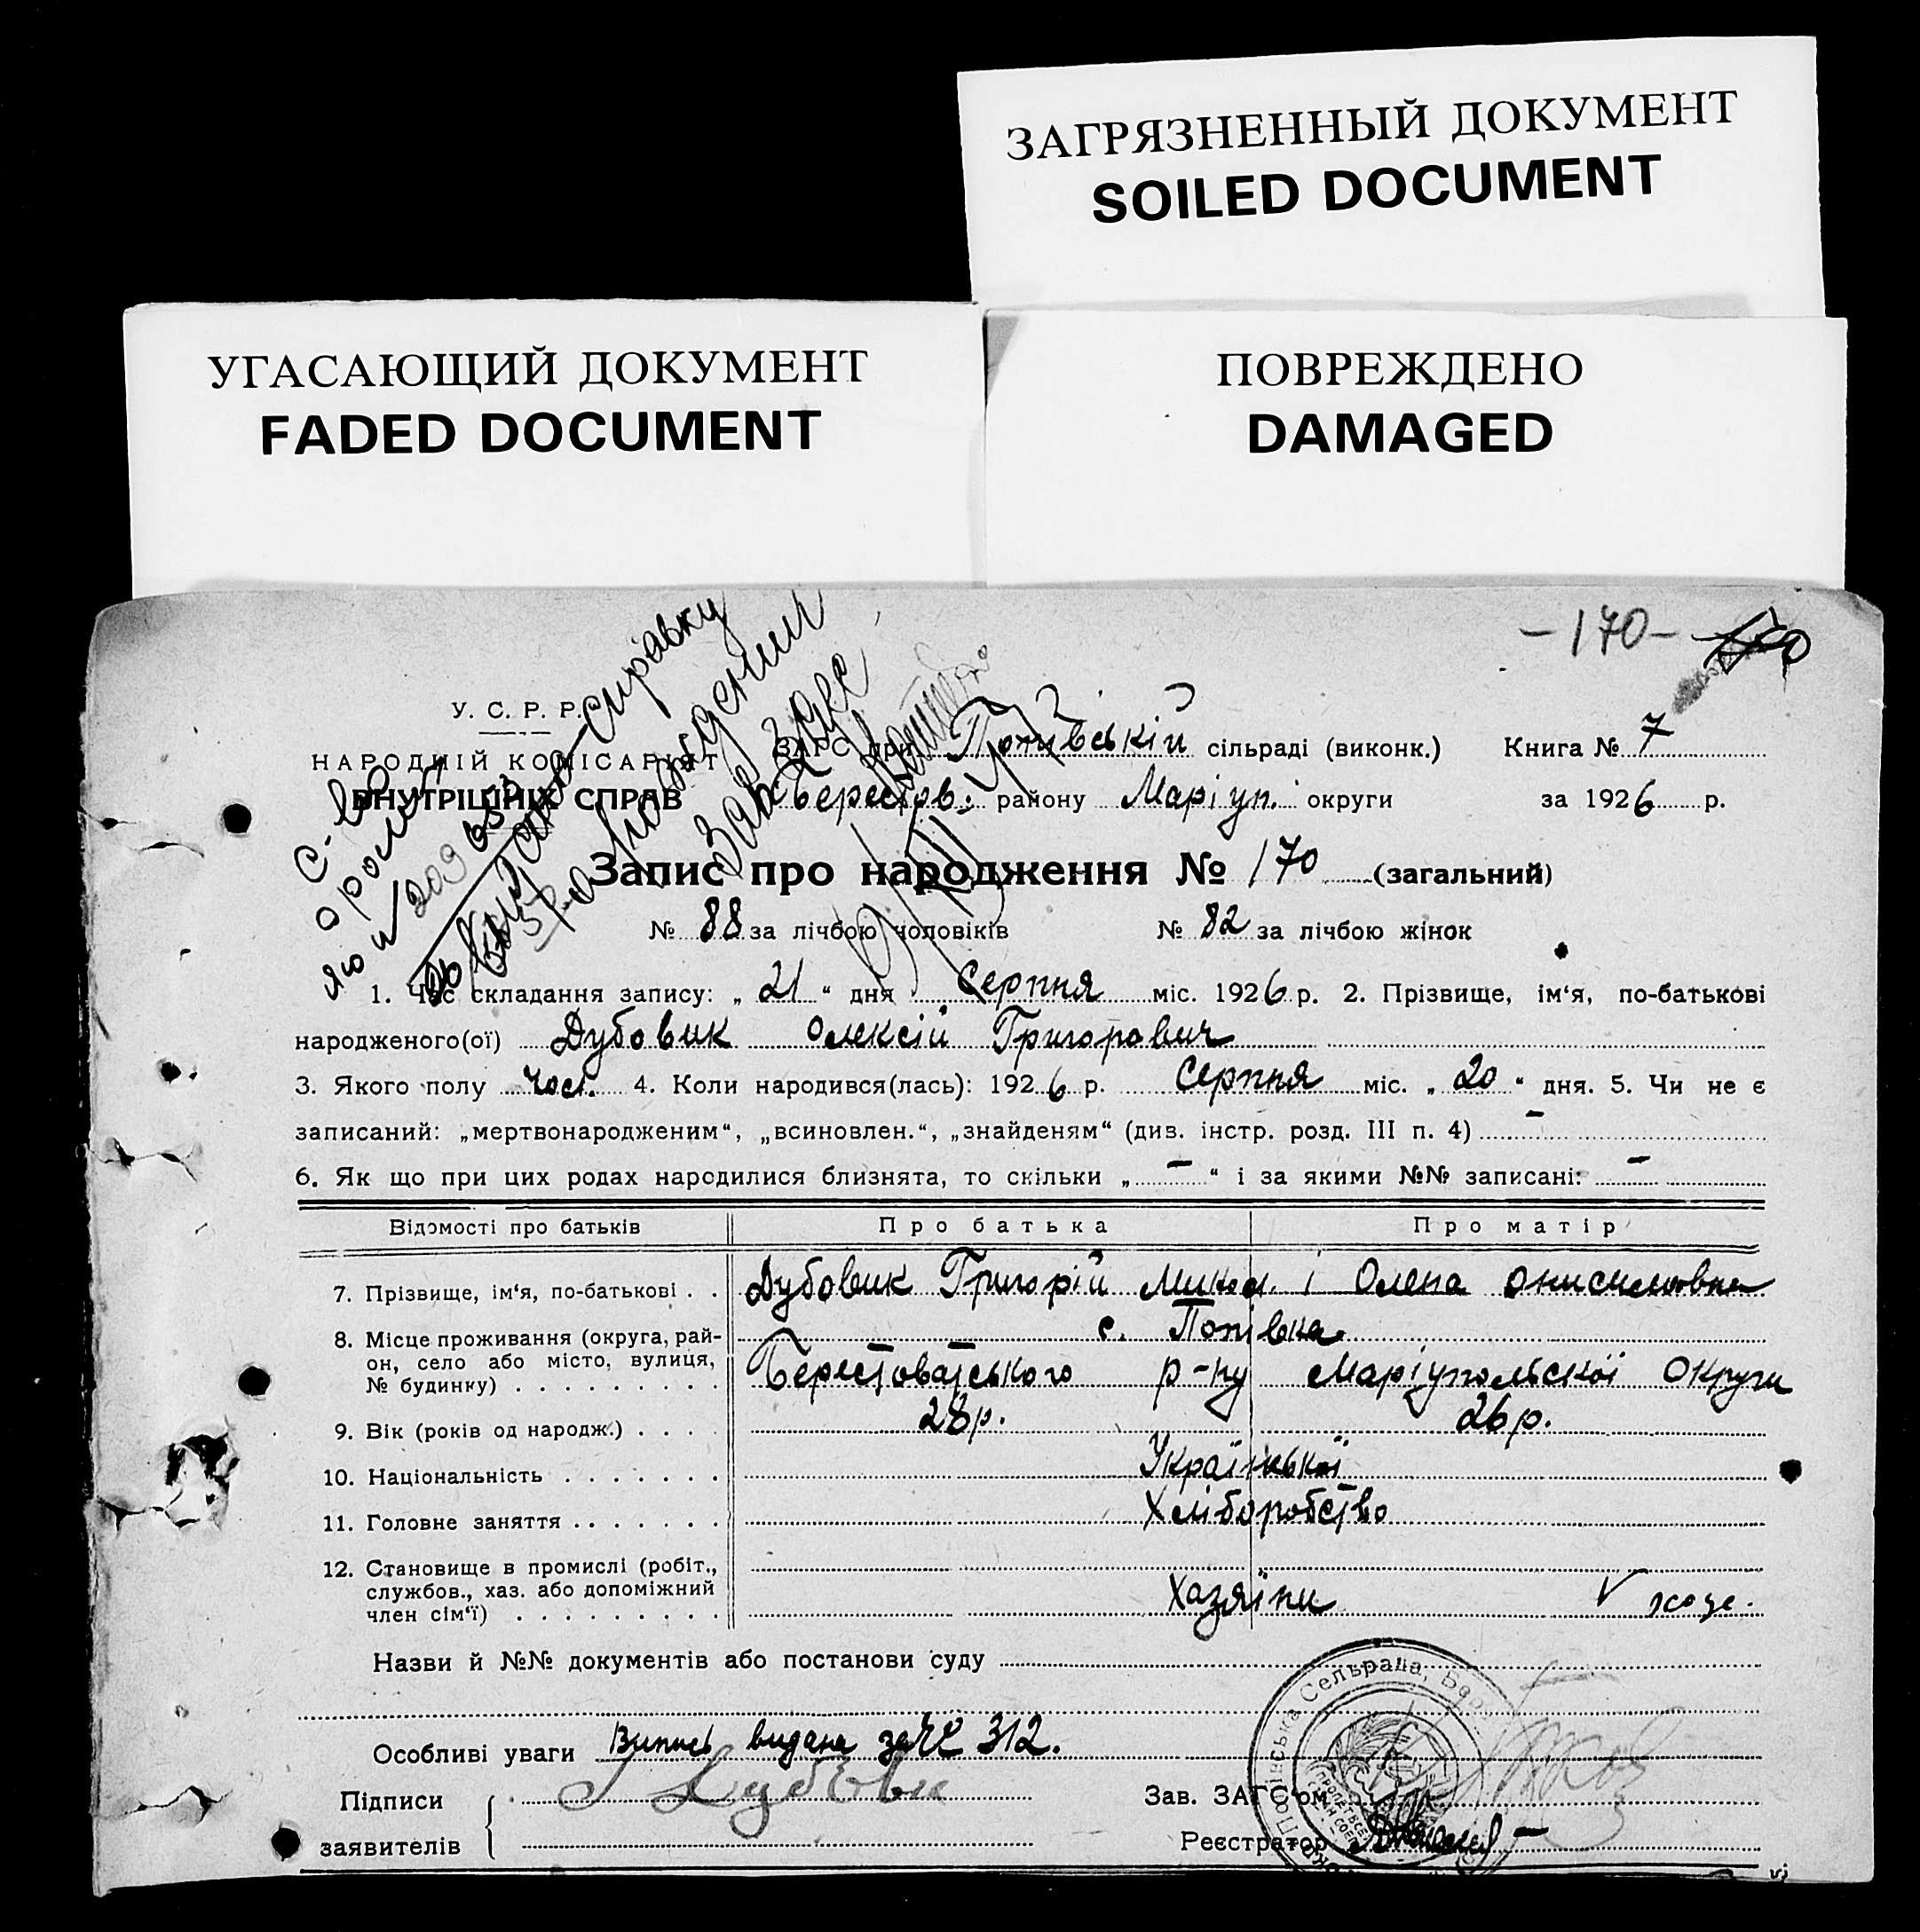 ЗАГРЯЗНЕННЫЙ ДОКУМЕНТ
SOILED DOCUMENT
УГАСАЮЩИЙ ДОКУМЕНТ
FADED DOCUMENT
ПОВРЕЖДЕНО
DAMAGED
-170-
справку
У. С. Р. Р.
НАРОДНІЙ КОМІСАРІЯТ
ВНУТРІШНІХ СПРАВ
ЗАГС при Попівській сільраді (виконк.) Книга № 7
Берестов. району Маріуп. округи за 1926 р.
Запис про народження № 170 (загальний)
№ 88 за лічбою чоловіків № 82 за лічбою жінок
1. Час складання запису: „ 21 “ дня Серпня міс. 1926 р. 2. Прізвище, ім‘я, по-батькові
народженого(ої) Дубовик Олексій Григорович
3. Якого полу чол. 4. Коли народився(лась): 1926 р. Серпня міс. „ 20 “ дня. 5. Чи не є
записаний: „мертвонародженим“, „всиновлен.“, „знайденям“ (див. інстр. розд. III п. 4) -
6. Як що при цих родах народилися близнята, то скільки „ - “ і за якими №№ записані: -
Відомості про батьків Про батька Про матір
7. Прізвище, ім‘я, по-батькові . . Дубовик Григорій Микол. і Олена Онисимовна
8. Місце проживання (округа, рай- с. Попівка
он, село або місто, вулиця, Берестоватського р-ну Маріупольської Округи
№ будинку) . . . . . . . . .
9. Вік (років од народж.) . . . . 28 р. 26 р.
10. Національність . . . . . . . Української
11. Головне заняття . . . . . . . Хліборобство
12. Становище в промислі (робіт.,
службов., хаз. або допоміжний Хазяїни
член сім‘ї) . . . . . . . . .
Назви й №№ документів або постанови суду
Особливі уваги Випись видана за № 312.
Підписи
заявителів
Зав. ЗАГС‘ом
Реєстратор